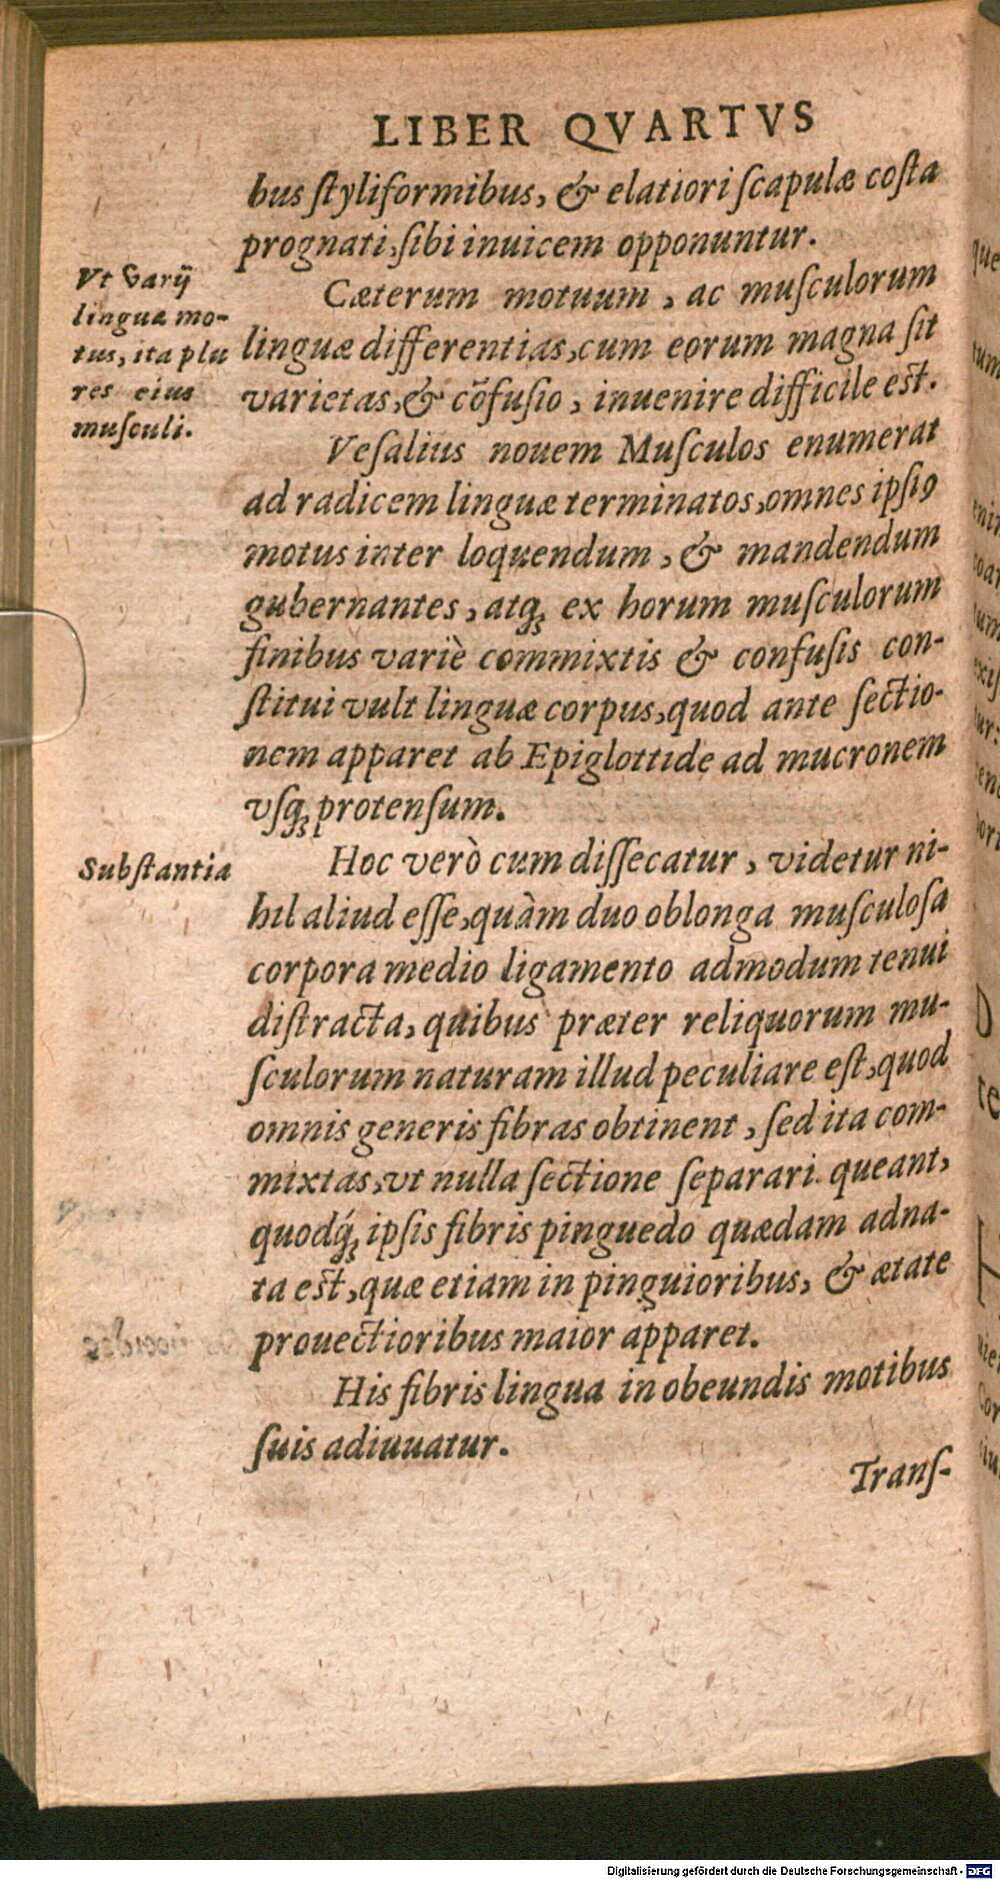 LIBER QVARTVS
bus ſtyliformibus, & elatiori ſcapulæ coſta
prognati, ſibi inuicem opponuntur.
Vt varij
linguæ mo-
tus, ita plu
res eius
muſculi.
Cæterum motuum, ac muſculorum
linguæ differentias, cum eorum magna ſit
varietas, & cõfuſio, inuenire difficile eſt.
Veſalius nouem Muſculos enumerat
ad radicem linguæ terminatos, omnes ipſiꝰ
motus inter loquendum, & mandendum
gubernantes, atq; ex horum muſculorum
finibus variè commixtis & confuſis con-
ſtitui vult linguæ corpus, quod ante ſectio-
nem apparet ab Epiglottide ad mucronem
vſq; protenſum.
Subſtantia
Hoc verò cum diſſecatur, videtur ni-
hil aliud eſſe, quàm duo oblonga muſculoſa
corpora medio ligamento admodum tenui
diſtracta, quibus præter reliquorum mu-
ſculorum naturam illud peculiare eſt, quod
omnis generis fibras obtinent, ſed ita com-
mixtas, vt nulla ſectione ſeparari queant,
quodq́; ipſis fibris pinguedo quædam adna-
ta eſt, quæ etiam in pinguioribus, & ætate
prouectioribus maior apparet.
His fibris lingua in obeundis motibus
ſuis adiuuatur.
Tranſ-
Digitalisierung gefördert durch die Deutsche Forschungsgemeinschaft - DFG